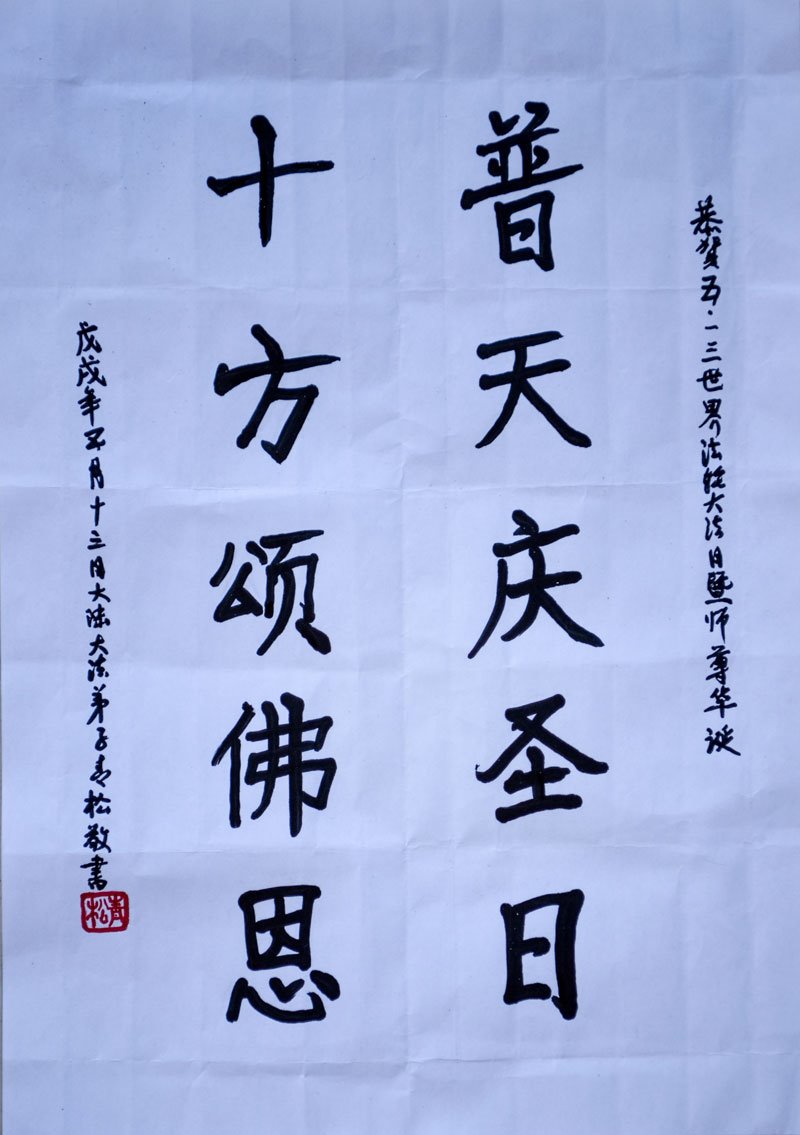 恭贺五·一三世界法轮大法日暨师尊华诞
普天庆圣日
十方颂佛恩
戊戌年五月十三日大陆大法弟子青松敬书
青松